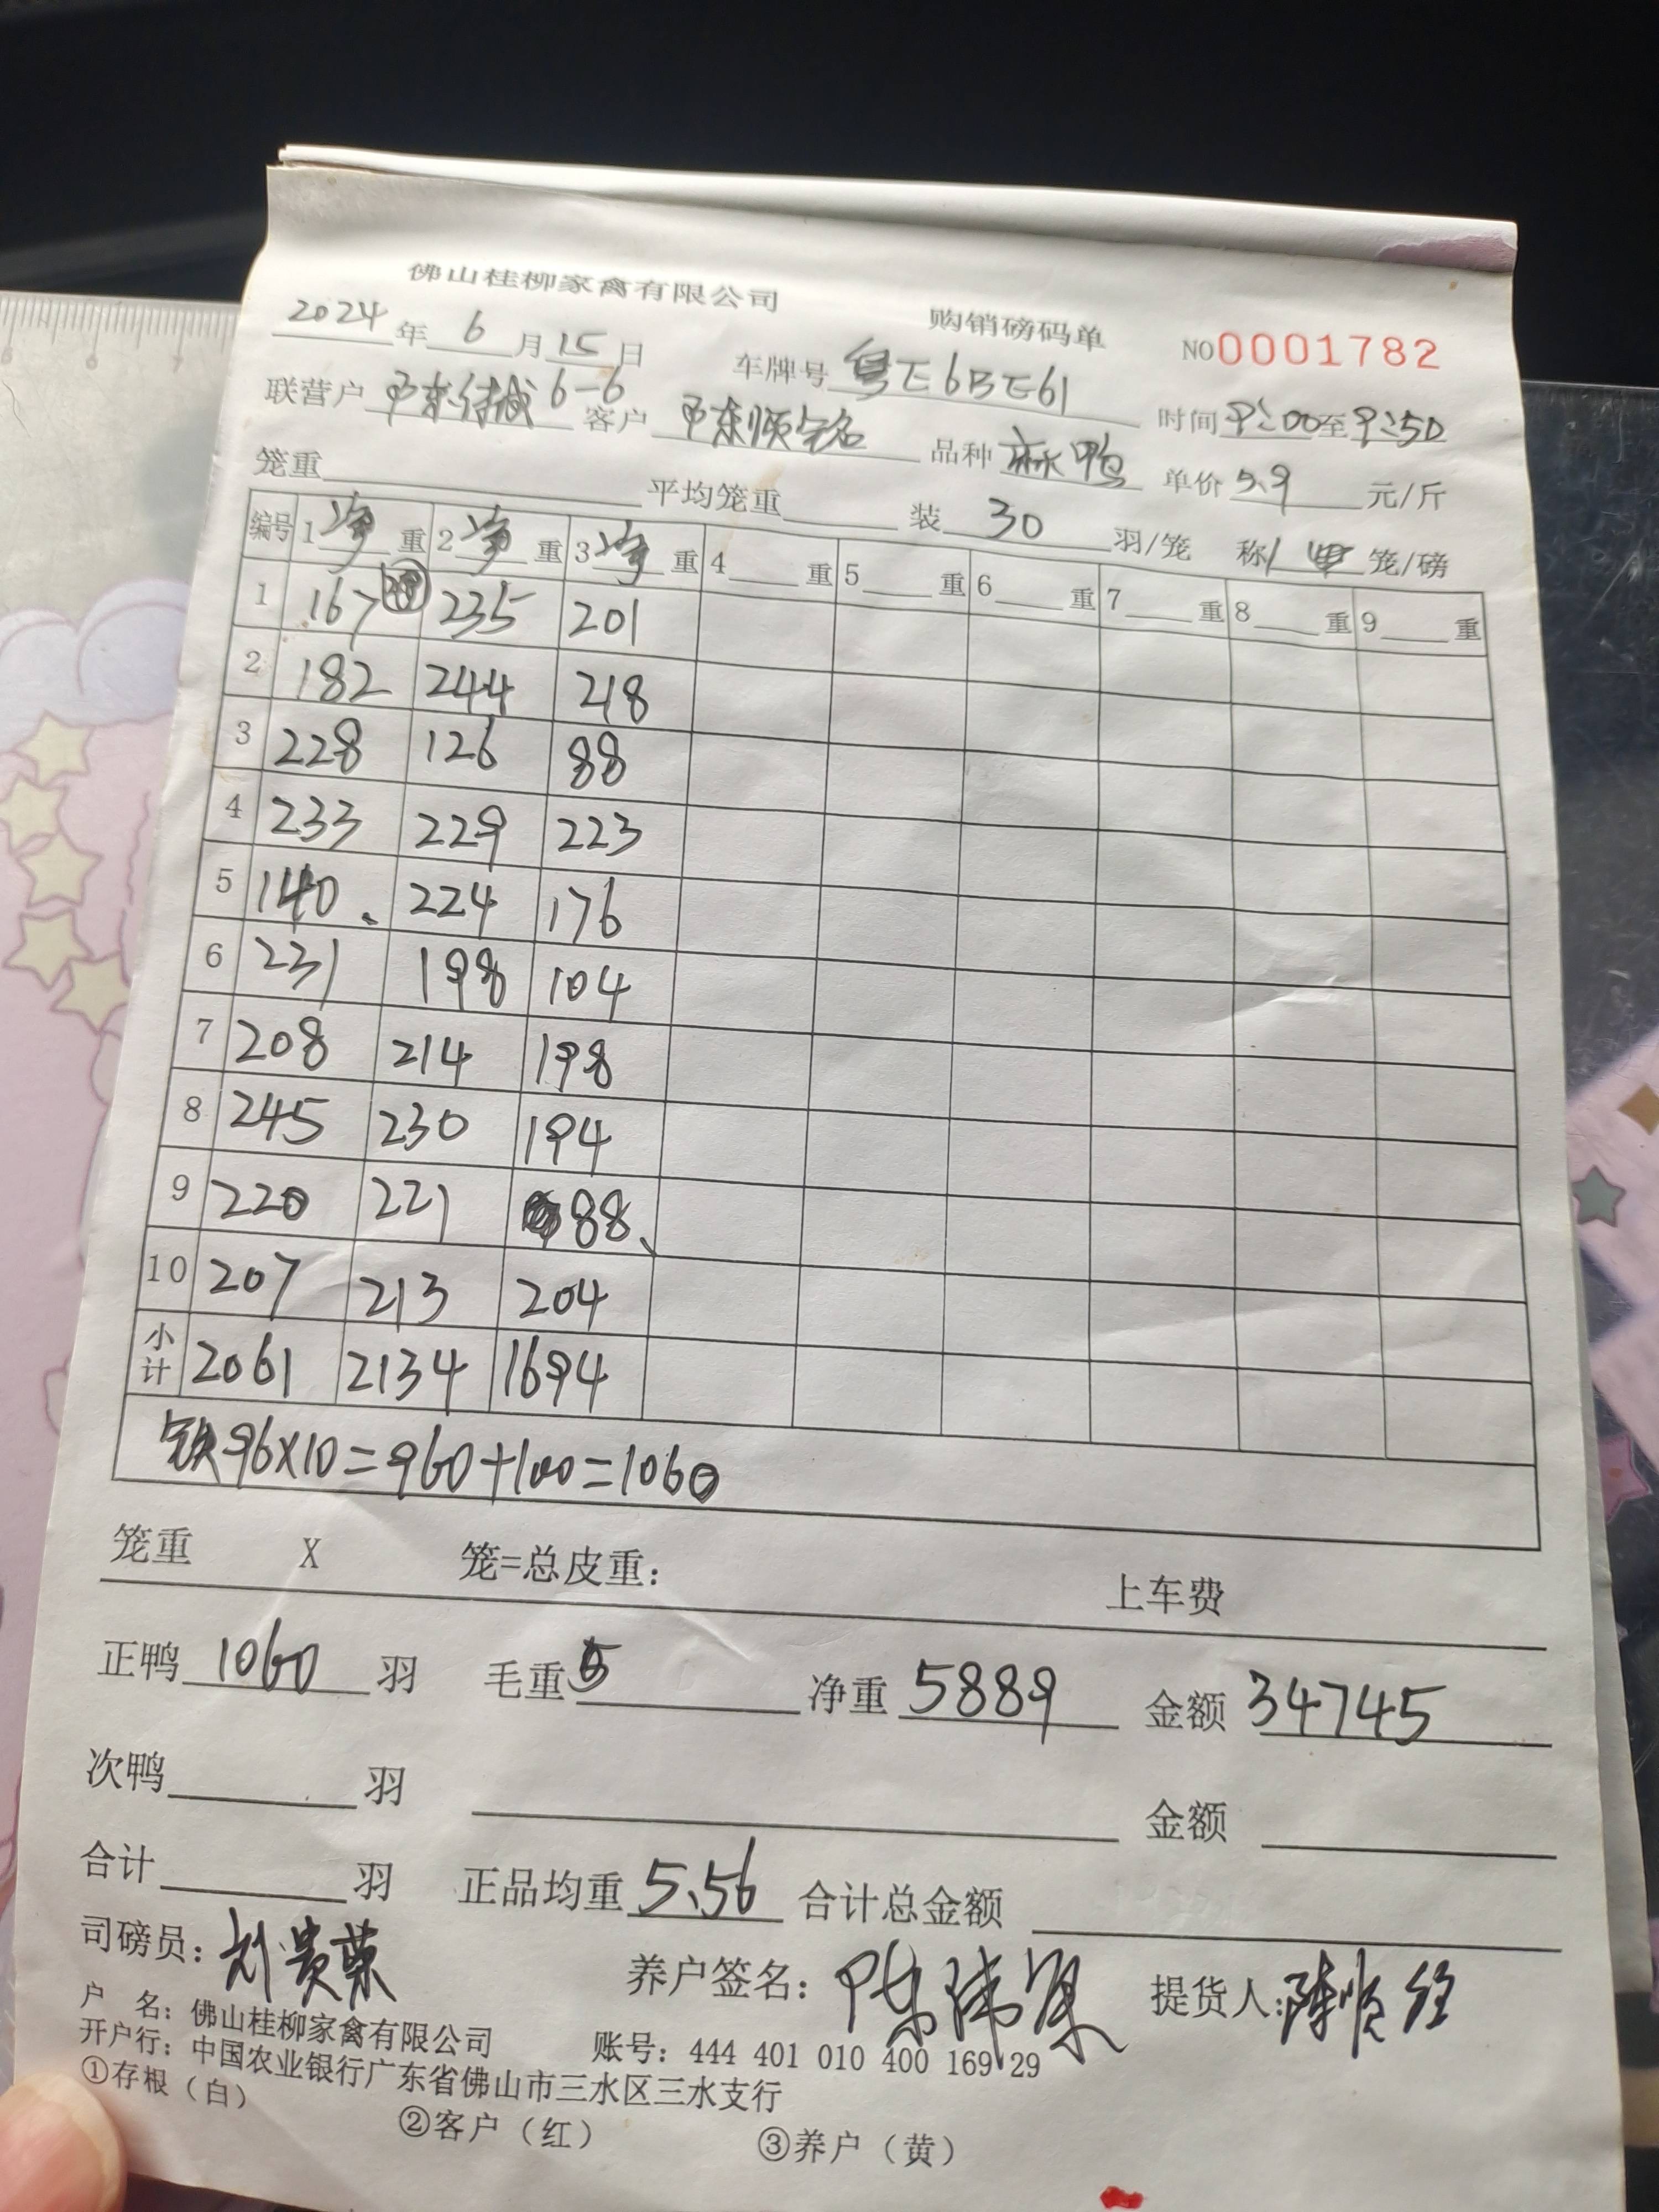 佛山桂柳家禽有限公司 购销磅码单 NO0001782
2024年6月15日 车牌号 粤E6BE61 时间 9:00至9:50
联营户 6-6 客户 品种 麻鸭 单价 5.9 元/斤
笼重 平均笼重 装 30 羽/笼 称 笼/磅
编号 1净重 2净重 3净重 4重 5重 6重 7重 8重 9重
1 167 235 201
2 182 244 218
3 228 126 88
4 233 229 223
5 140、 224 176
6 231 198 104
7 208 214 198
8 245 230 194
9 220 221 88、
10 207 213 204
小计 2061 2134 1694
铁96X10=960+100=1060
笼重 X 笼=总皮重: 上车费
正鸭 1060 羽 毛重 净重 5889 金额 34745
次鸭 羽 金额
合计 羽 正品均重 5.56 合计总金额
司磅员: 刘贵荣 养户签名: 提货人:
户 名: 佛山桂柳家禽有限公司 账号: 444 401 010 400 169 29
开户行: 中国农业银行广东省佛山市三水区三水支行
①存根（白） ②客户（红） ③养户（黄）